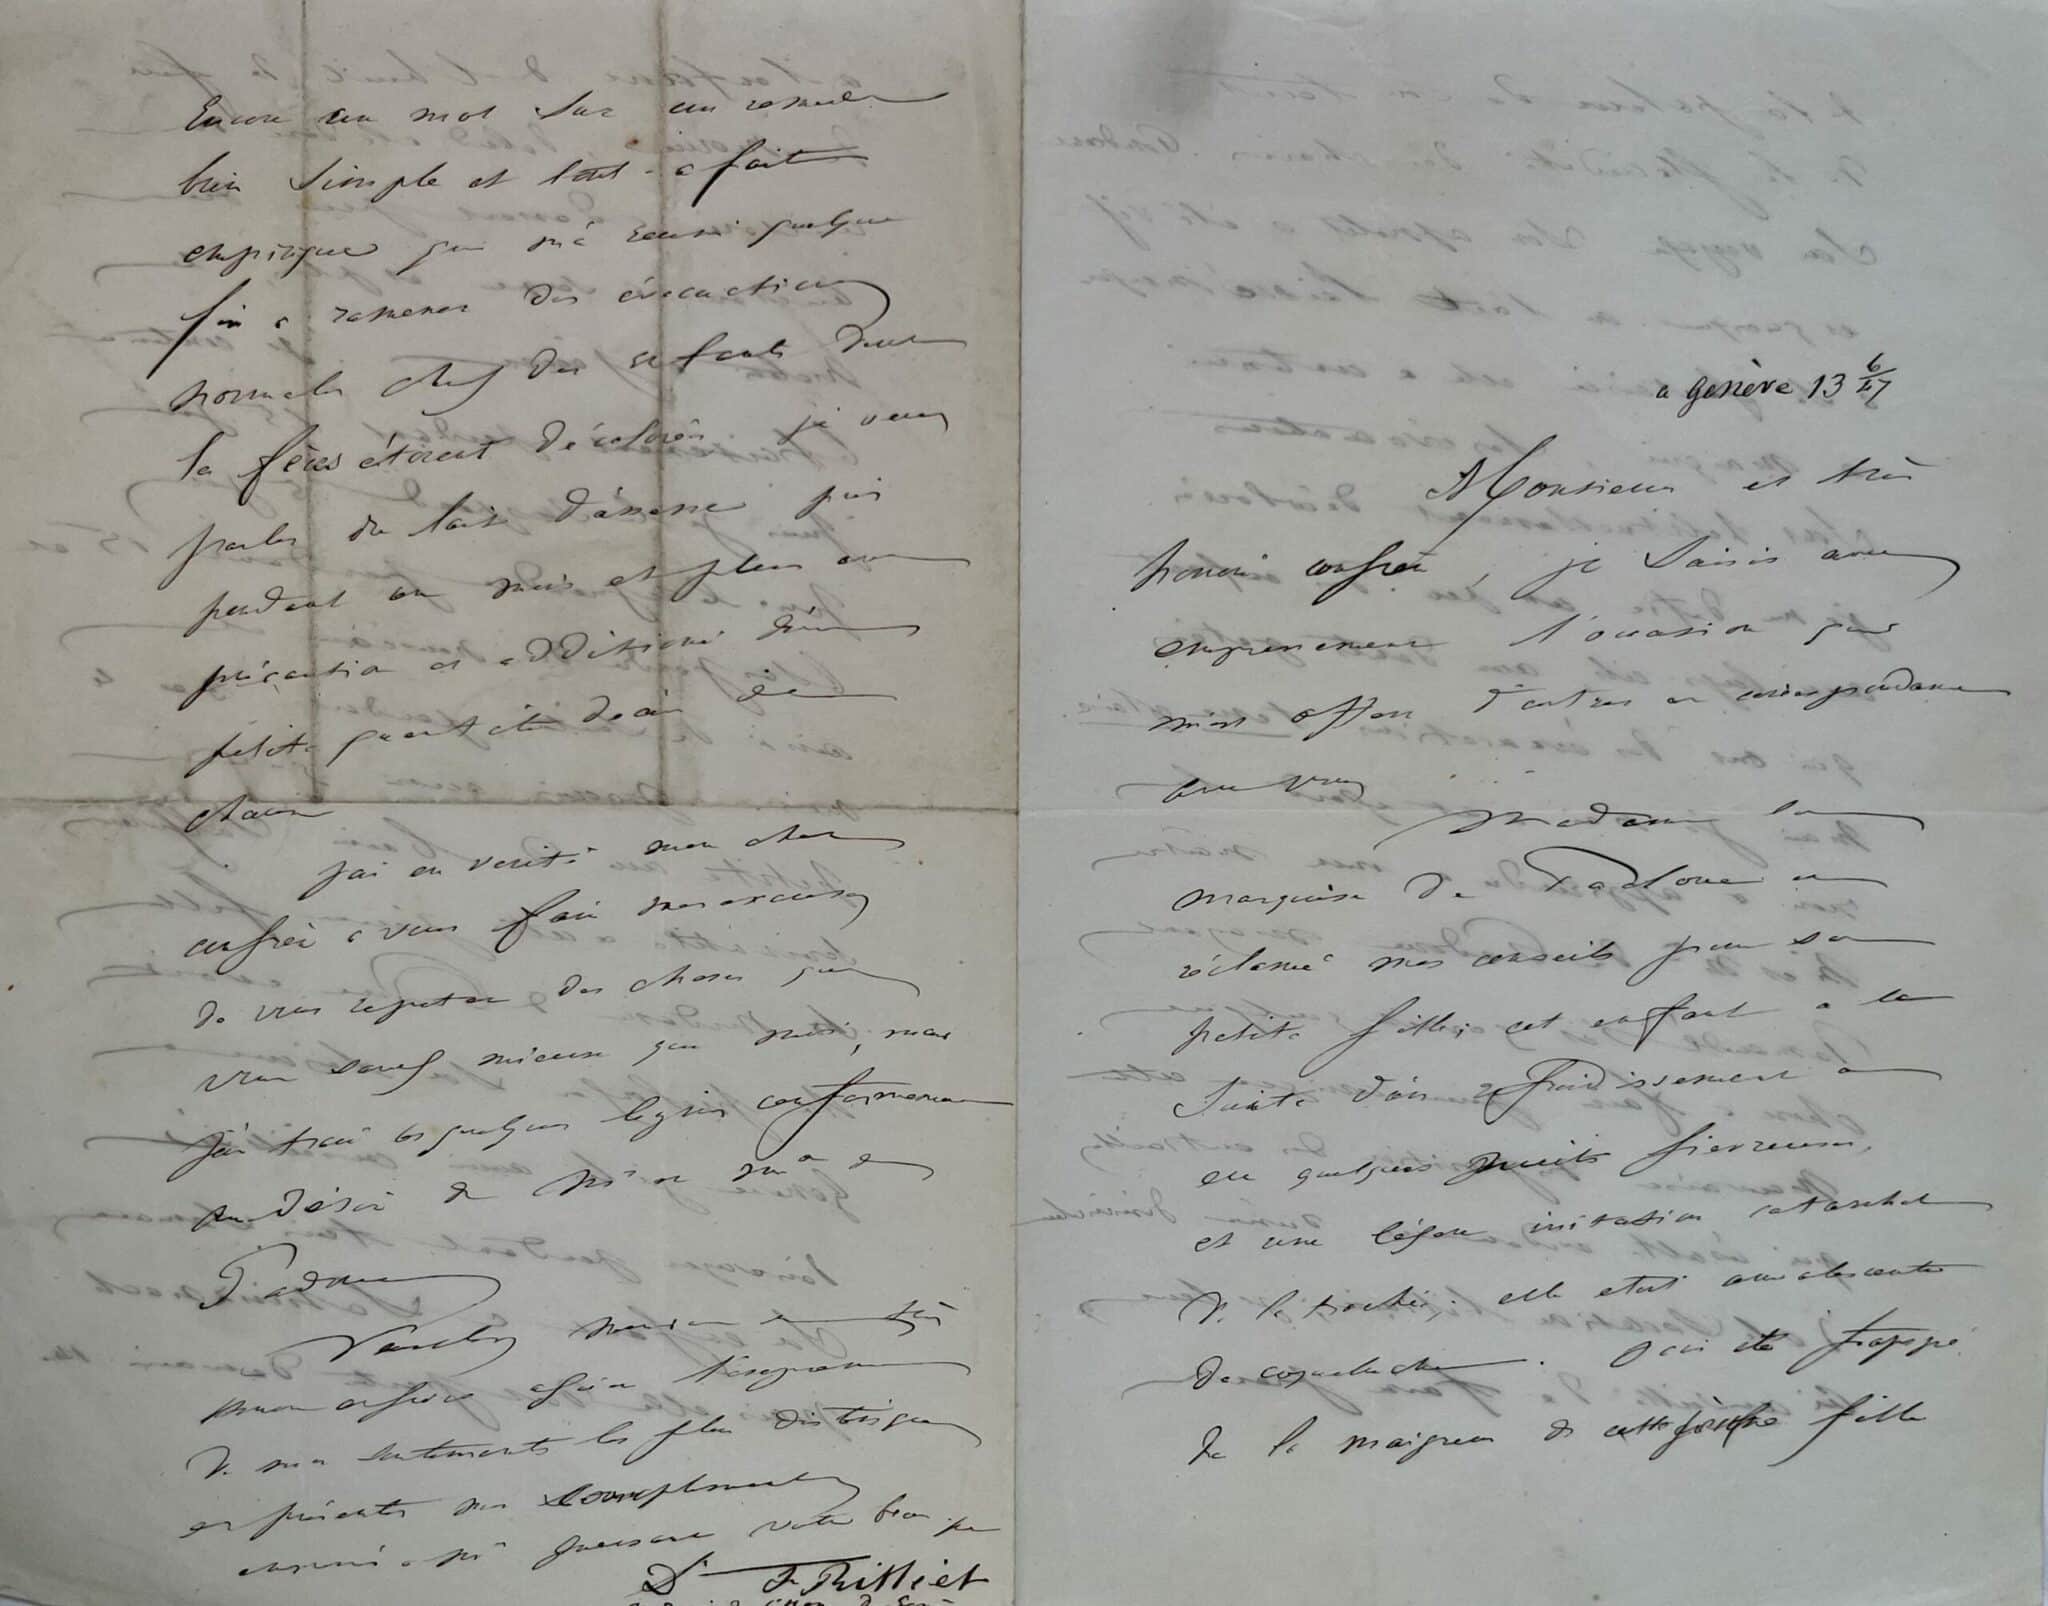 a Genève 13 6/47
Monsieur et très
honoré confrère, je saisis avec
empressement l'occasion qui
m'est offerte d'entrer en correspondance
avec vous
Madame la
marquise de Padoue a
réclamé mes conseils pour sa
petite fille; cet enfant a la
suite d'un refroidissement a
eu quelques nuits fievreuses,
et une légère irritation catarrhale
de la trachée; elle etait convalescente
de coqueluche. J'ai été frappé
de la maigreur de cette jeune fille
Encore un mot sur un remède
bien simple et tout-a fait
empirique qui m'a reussi quelque
fois a ramener des évacuations
normales chez des enfants dont
les fèces étoient décolorées je veux
parler du lait d'anesse pris
pendant un mois et plus avec
précaution et additionné d'une
petite quantité d'eau de
chaux
J'ai en verité mon cher
confrère a vous faire mes excuses
de vous repeter des choses que
vous savez mieux que moi, mais
j'ai tracé ces quelques lignes conformement
au désir de Mr et Mme de
Padoue
Veuillez monsieur et très
honoré confrère agréer l'expression
de mes sentiments les plus distingués
et présenter mes compliments
a Mr votre beau-père
Dr F. Rilliet